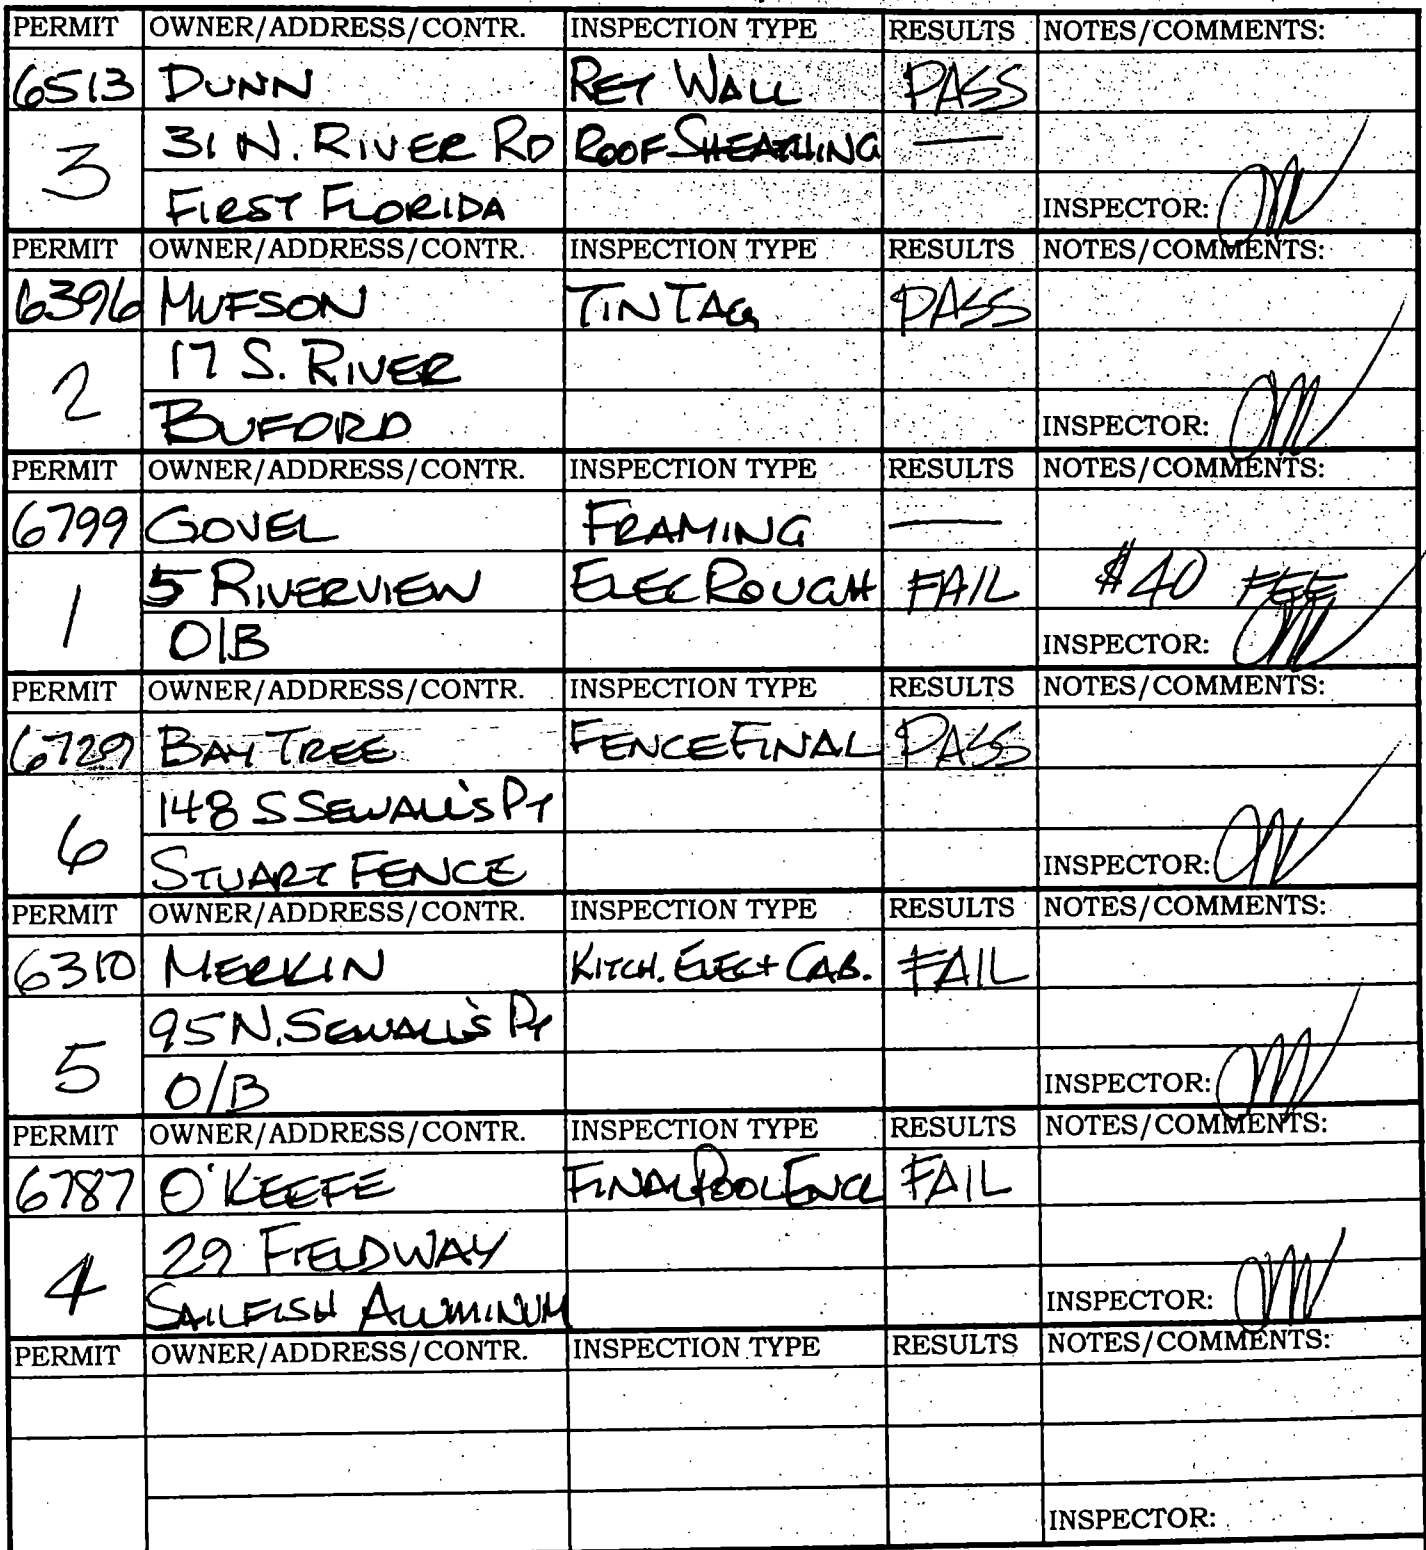 PERMIT OWNER/ADDRESS/CONTR. INSPECTION TYPE RESULTS NOTES/COMMENTS:
6513 DUNN RET WALL PASS
3 31 N. RIVER RD ROOF SHEATHING —
FIRST FLORIDA INSPECTOR:
PERMIT OWNER/ADDRESS/CONTR. INSPECTION TYPE RESULTS NOTES/COMMENTS:
6396 MUFSON TIN TAG PASS
2 17 S. RIVER
BUFORD INSPECTOR:
PERMIT OWNER/ADDRESS/CONTR. INSPECTION TYPE RESULTS NOTES/COMMENTS:
6799 GOVEL FRAMING —
1 5 RIVERVIEW ELEC ROUGH FAIL $40 FEE
O/B INSPECTOR:
PERMIT OWNER/ADDRESS/CONTR. INSPECTION TYPE RESULTS NOTES/COMMENTS:
6729 BAY TREE FENCE FINAL PASS
6 148 S SEWALL'S PT
STUART FENCE INSPECTOR:
PERMIT OWNER/ADDRESS/CONTR. INSPECTION TYPE RESULTS NOTES/COMMENTS:
6310 MERKIN KITCH. ELEC + CAB. FAIL
5 95 N. SEWALL'S PT
O/B INSPECTOR:
PERMIT OWNER/ADDRESS/CONTR. INSPECTION TYPE RESULTS NOTES/COMMENTS:
6787 O'KEEFE FINAL POOL ENCL FAIL
4 29 FIELDWAY
SAILFISH ALUMINUM INSPECTOR:
PERMIT OWNER/ADDRESS/CONTR. INSPECTION TYPE RESULTS NOTES/COMMENTS:
INSPECTOR: